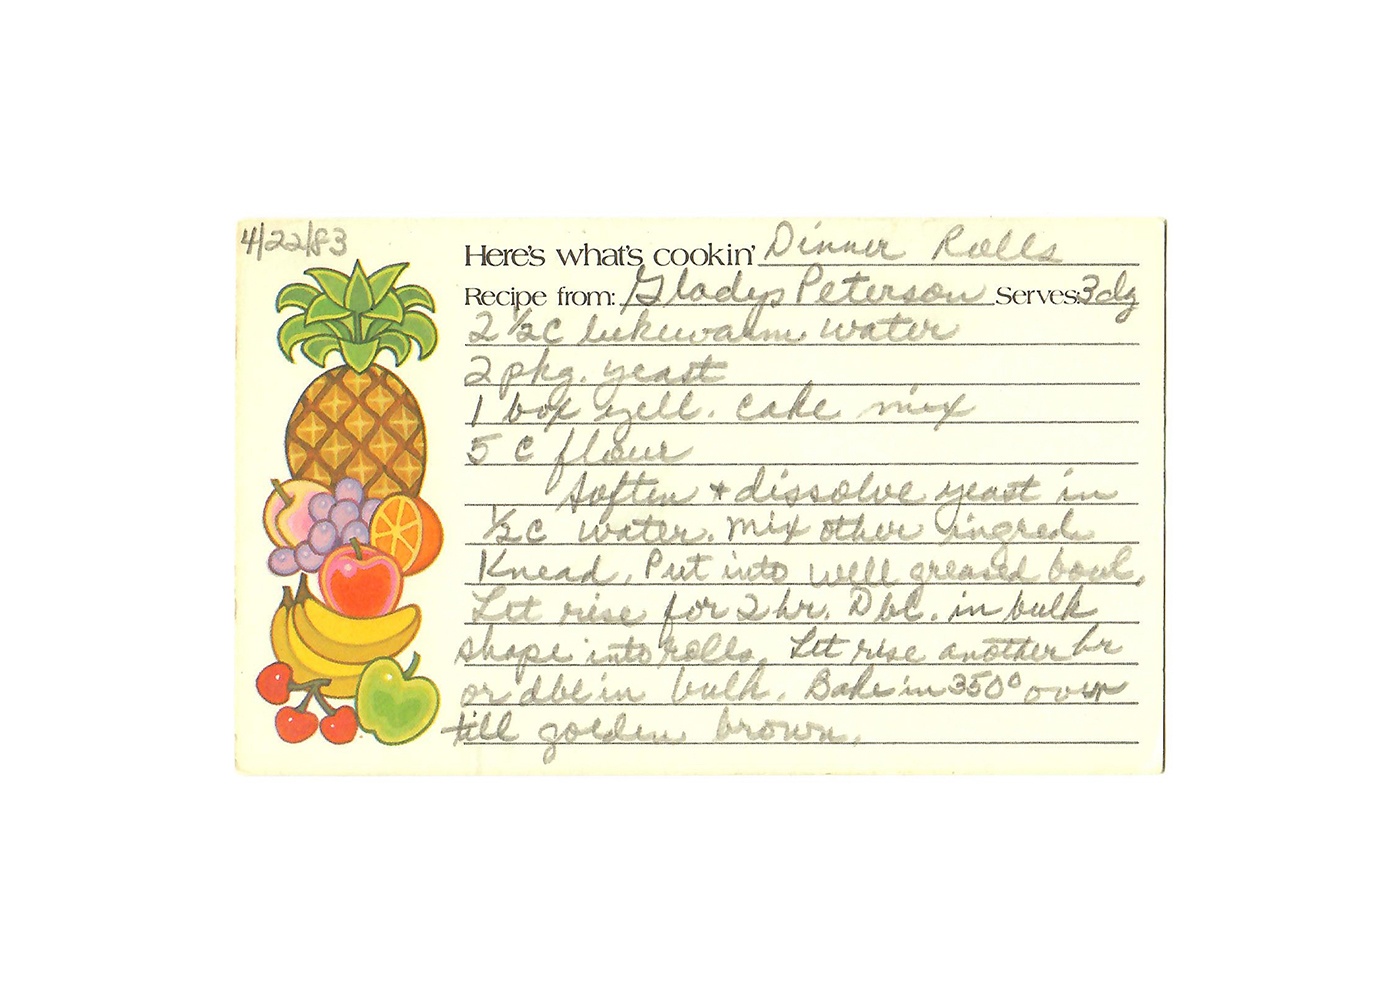 4/22/83
Here's what's cookin' Dinner Rolls
Recipe from: Gladys Peterson Serves: 3 dz
2 1/2 c lukewarm water
2 pkg. yeast
1 box yell. cake mix
5 c flour
Soften + dissolve yeast in
1/2 c water. Mix other ingred
Knead. Put into well greased bowl.
Let rise for 2 hr. Dbl. in bulk
shape into rolls. Let rise another hr
or dbl in bulk. Bake in 350° oven
till golden brown.